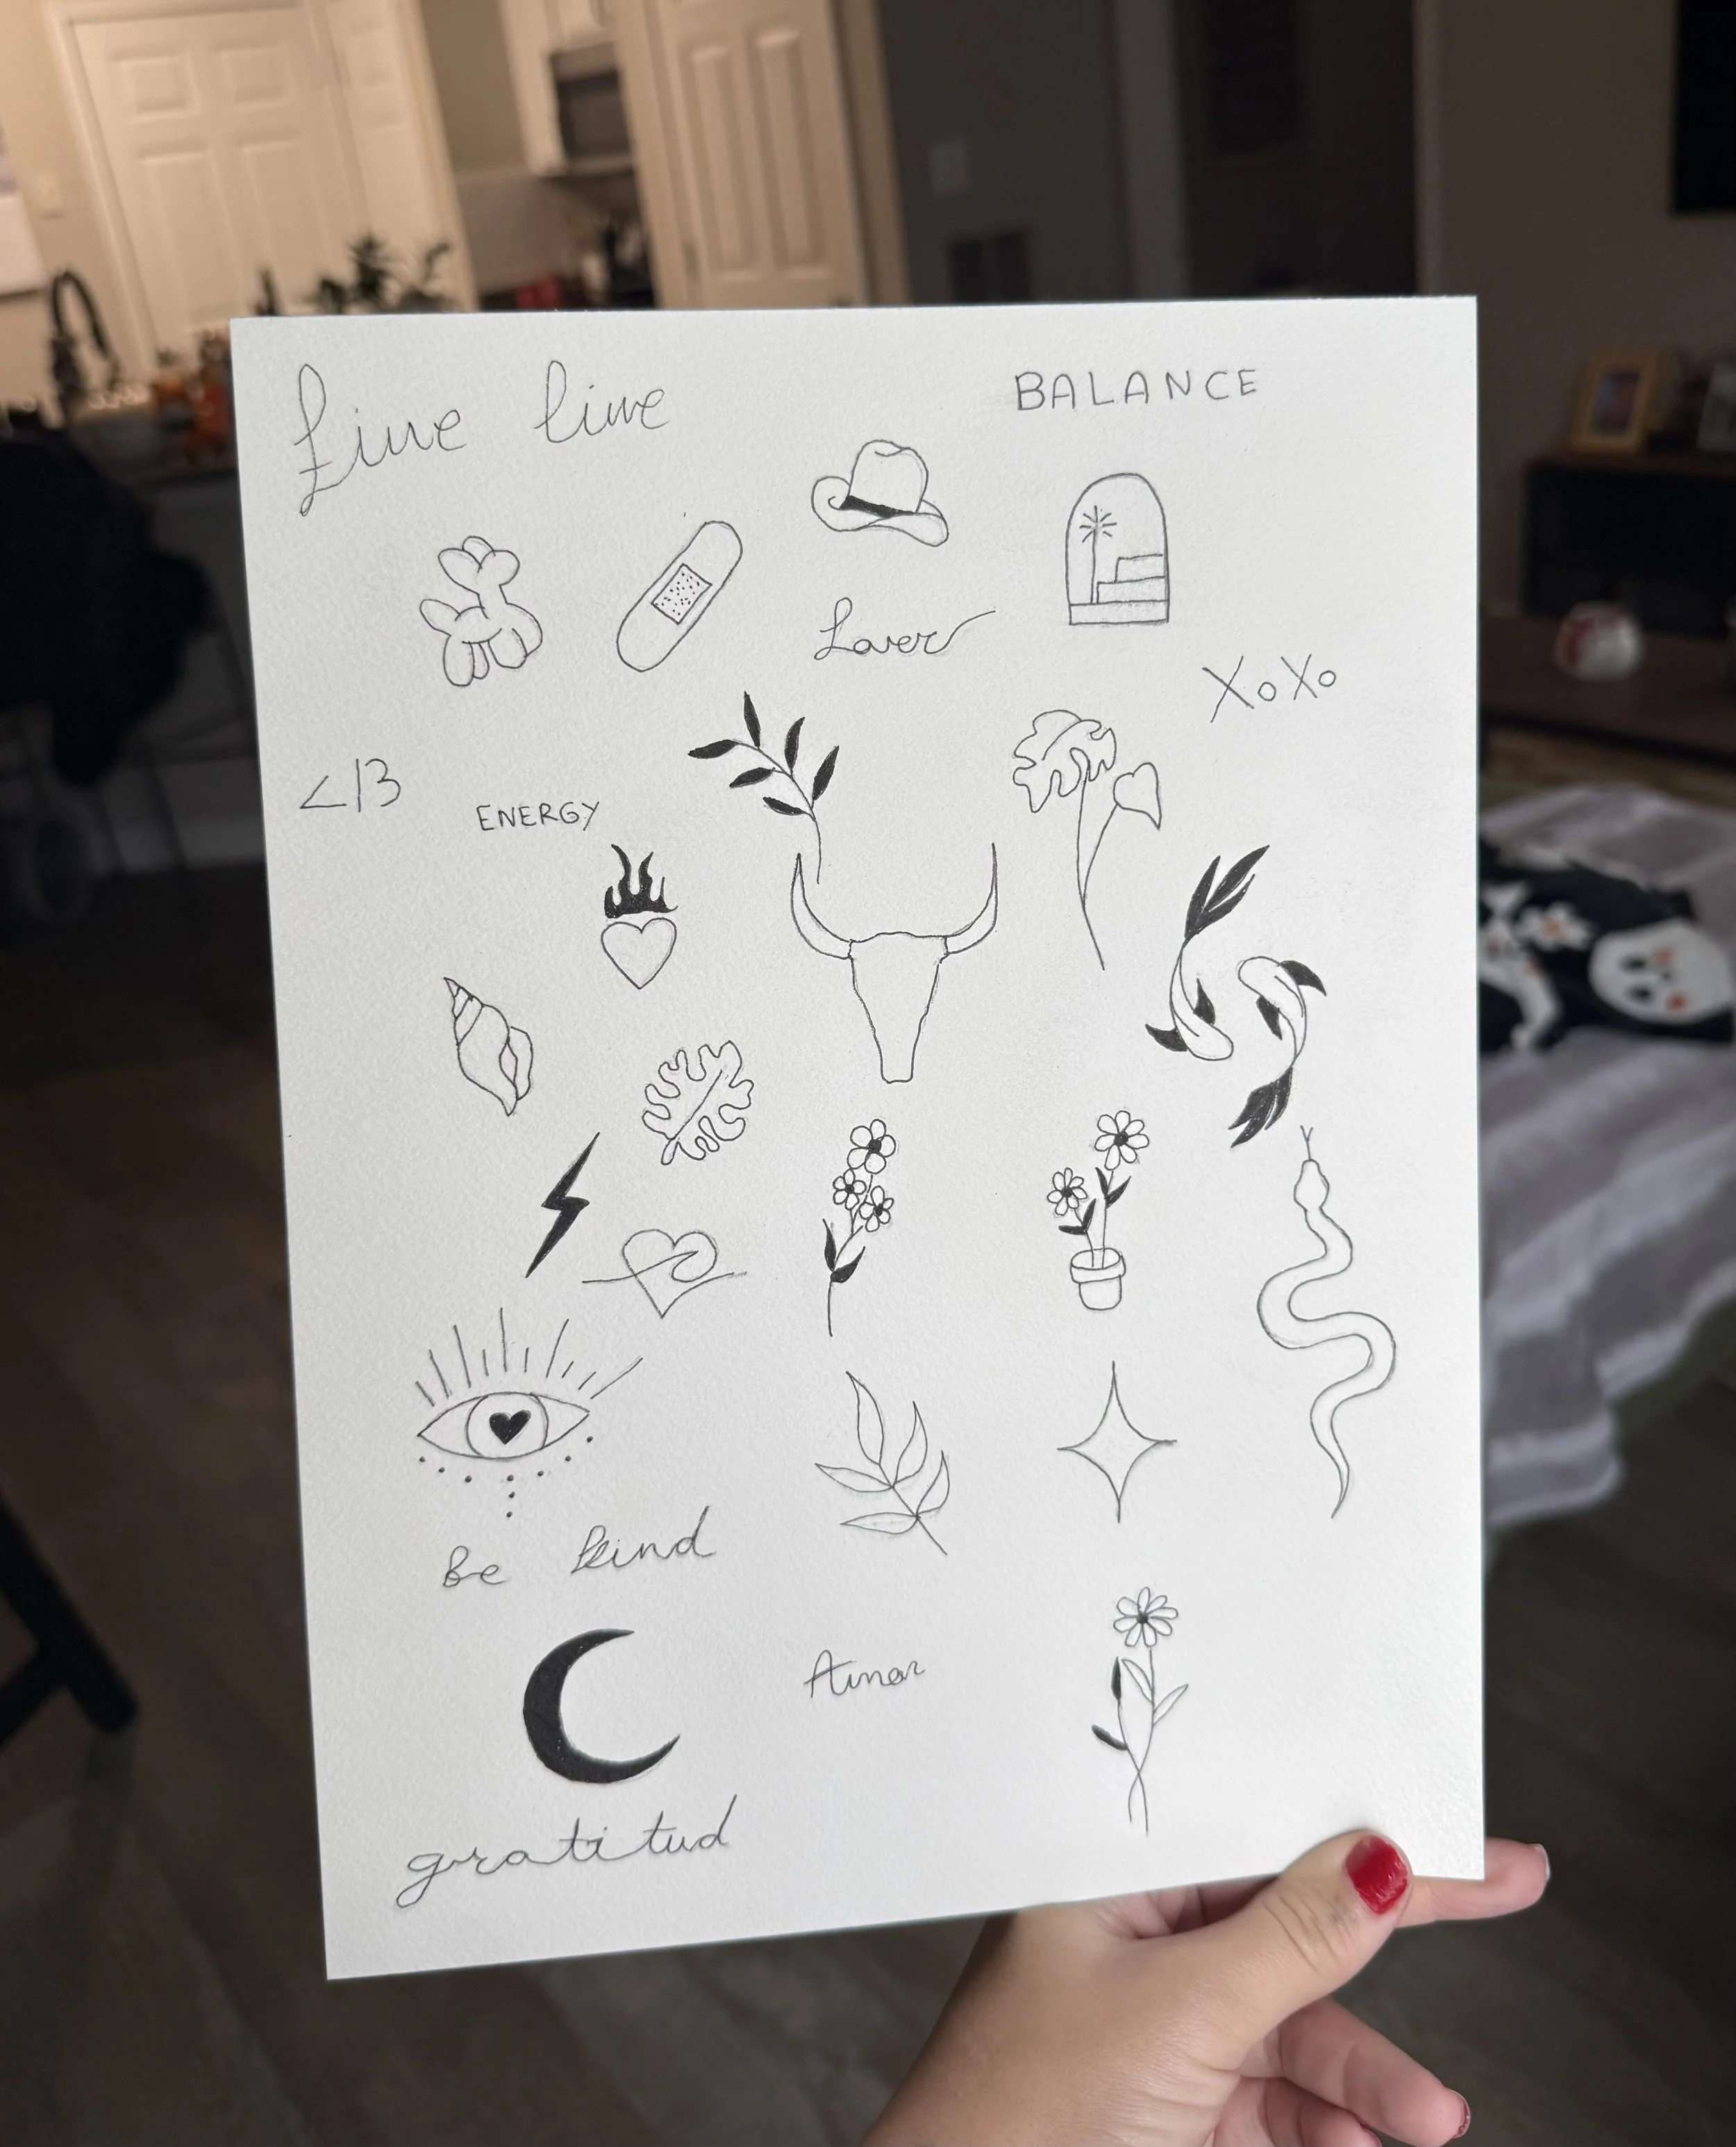 fine line
BALANCE
Lover
XoXo
</3
ENERGY
Be kind
Amor
gratitud